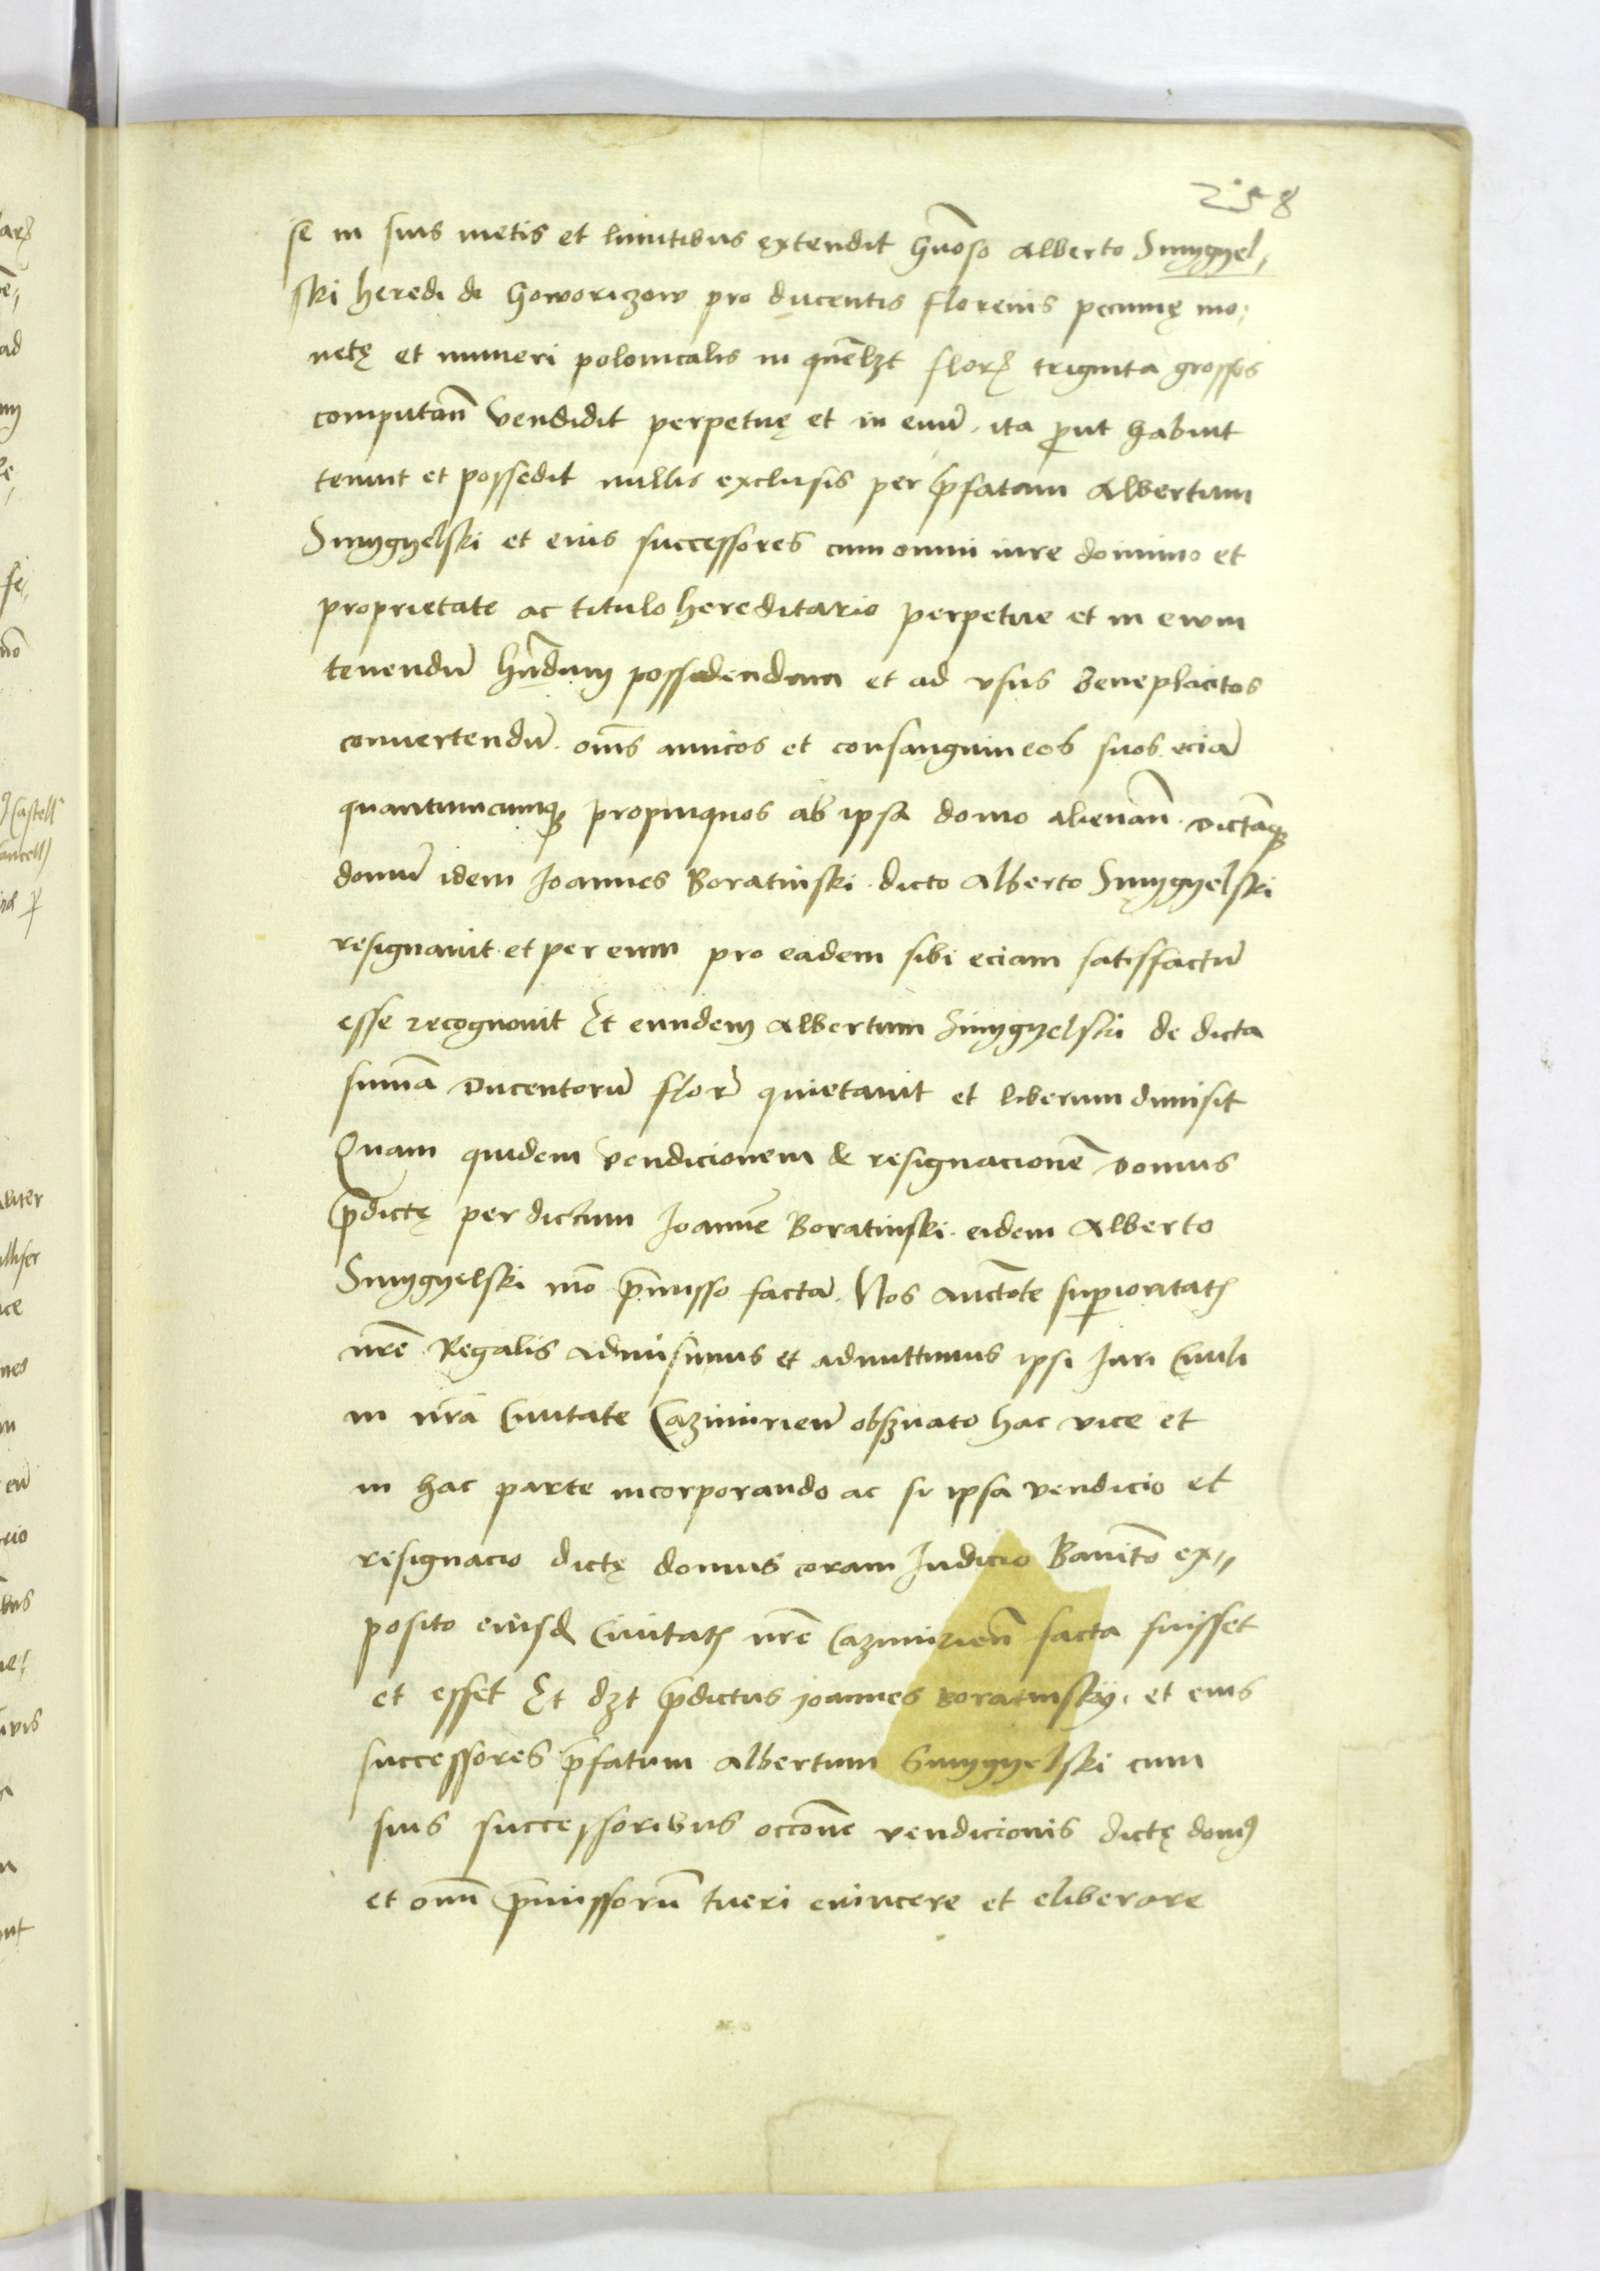 258
se in suis metis et limitibus extendit Gn̄oso Alberto Smygyel,
ski heredi de Goworczow pro ducentis florenis pecunię mo,
netę et numeri polonicalis in quēlzt florꝭ triginta grossos
computan̄ vendidit perpetuę et in euū. ita ꝓut habuit
tenuit et possedit nullis exclusis per p̄fatum Albertum
Smygyelski et eius successores cum omni iure dominio et
proprietate ac titulo hereditario perpetue et in ewm
tenendū hn̄dum possidendum et ad vsus beneplacitos
conuertendū. om̄s amicos et consanguineos suos eciā
quantumcunqꝫ propinquos ab ipsa domo alienan̄. dictāqꝫ
domū idem Joannes Boratinski dicto Alberto Smygyelski
resignauit et per eum pro eadem sibi eciam satisfactū
esse recognouit Et eundem Albertum Smygyelski de dicta
summā ducentorū flor̄ quietauit et liberum dimisit
Quam quidem vendicionem & resignacionē domus
p̄dictę per dictum Joannē Boratinski. eidem Alberto
Smygyelski mō p̄misso factā. Nos auctōte superioritatꝭ
nrē Regalis admisimus et admittimus ipsi Juri Ciuili
in nrā Ciuitate Cazimirień obsꝫuato hac vice et
in hac parte incorporando ac si ipsa vendicio et
resignacio dictę domus coram Judicio Bannitō ex,,
posito eiusdꝫ Ciuitatꝭ nrē Cazimirien̄ facta fuisset
et esset Et dꝫt p̄dictus Joannes Boratinsky. et eius
successores p̄fatum Albertum Smygyelski cum
suis successoribus occōne vendicionis dictę domꝯ
et om̄ p̄missorū tueri euincere et eliberare